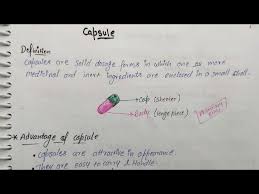 Capsule
Definition
Capsules are solid dosage forms in which one or more
medicinal and inert ingredients are enclosed in a small shell.
→ Cap (shorter)
→ Body (large piece)
* Advantage of capsule
• Capsules are attractive in appearance
• They are easy to carry & Handle.